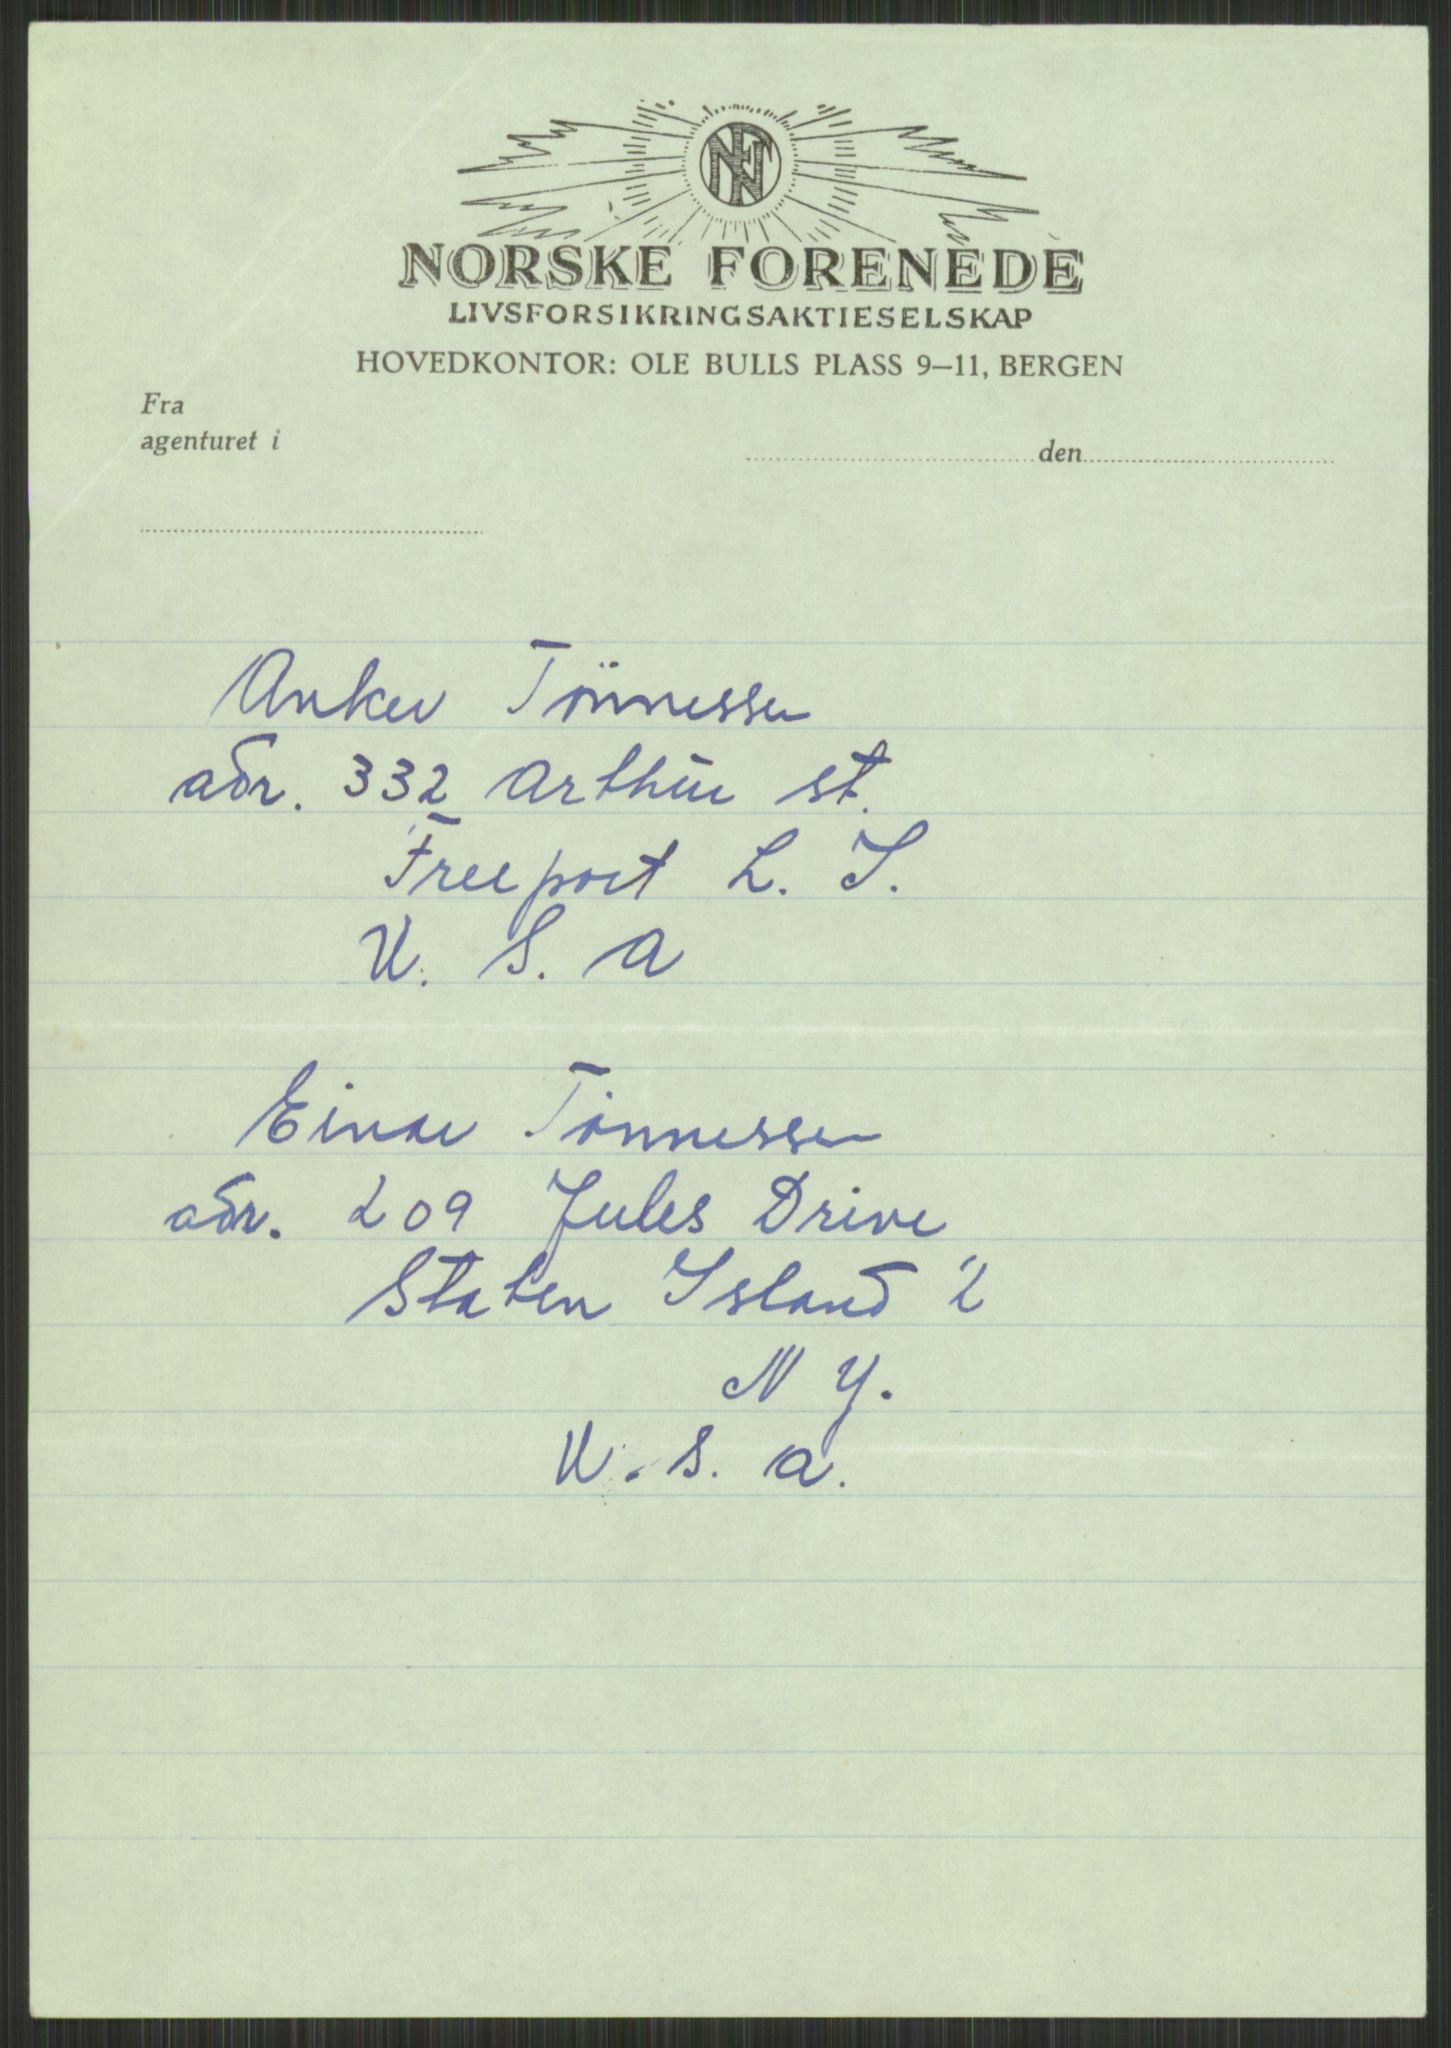 NF
NORSKE FORENEDE
LIVSFORSIKRINGSAKTIESELSKAP
HOVEDKONTOR: OLE BULLS PLASS 9–11, BERGEN
Fra
agenturet i
den
Anker Tönnessen
adr. 332 Arthur st.
Freeport L. I.
U. S. A
Einar Tönnessen
adr. 209 Jules Drive
Staten Island 2
N Y.
U. S. A.